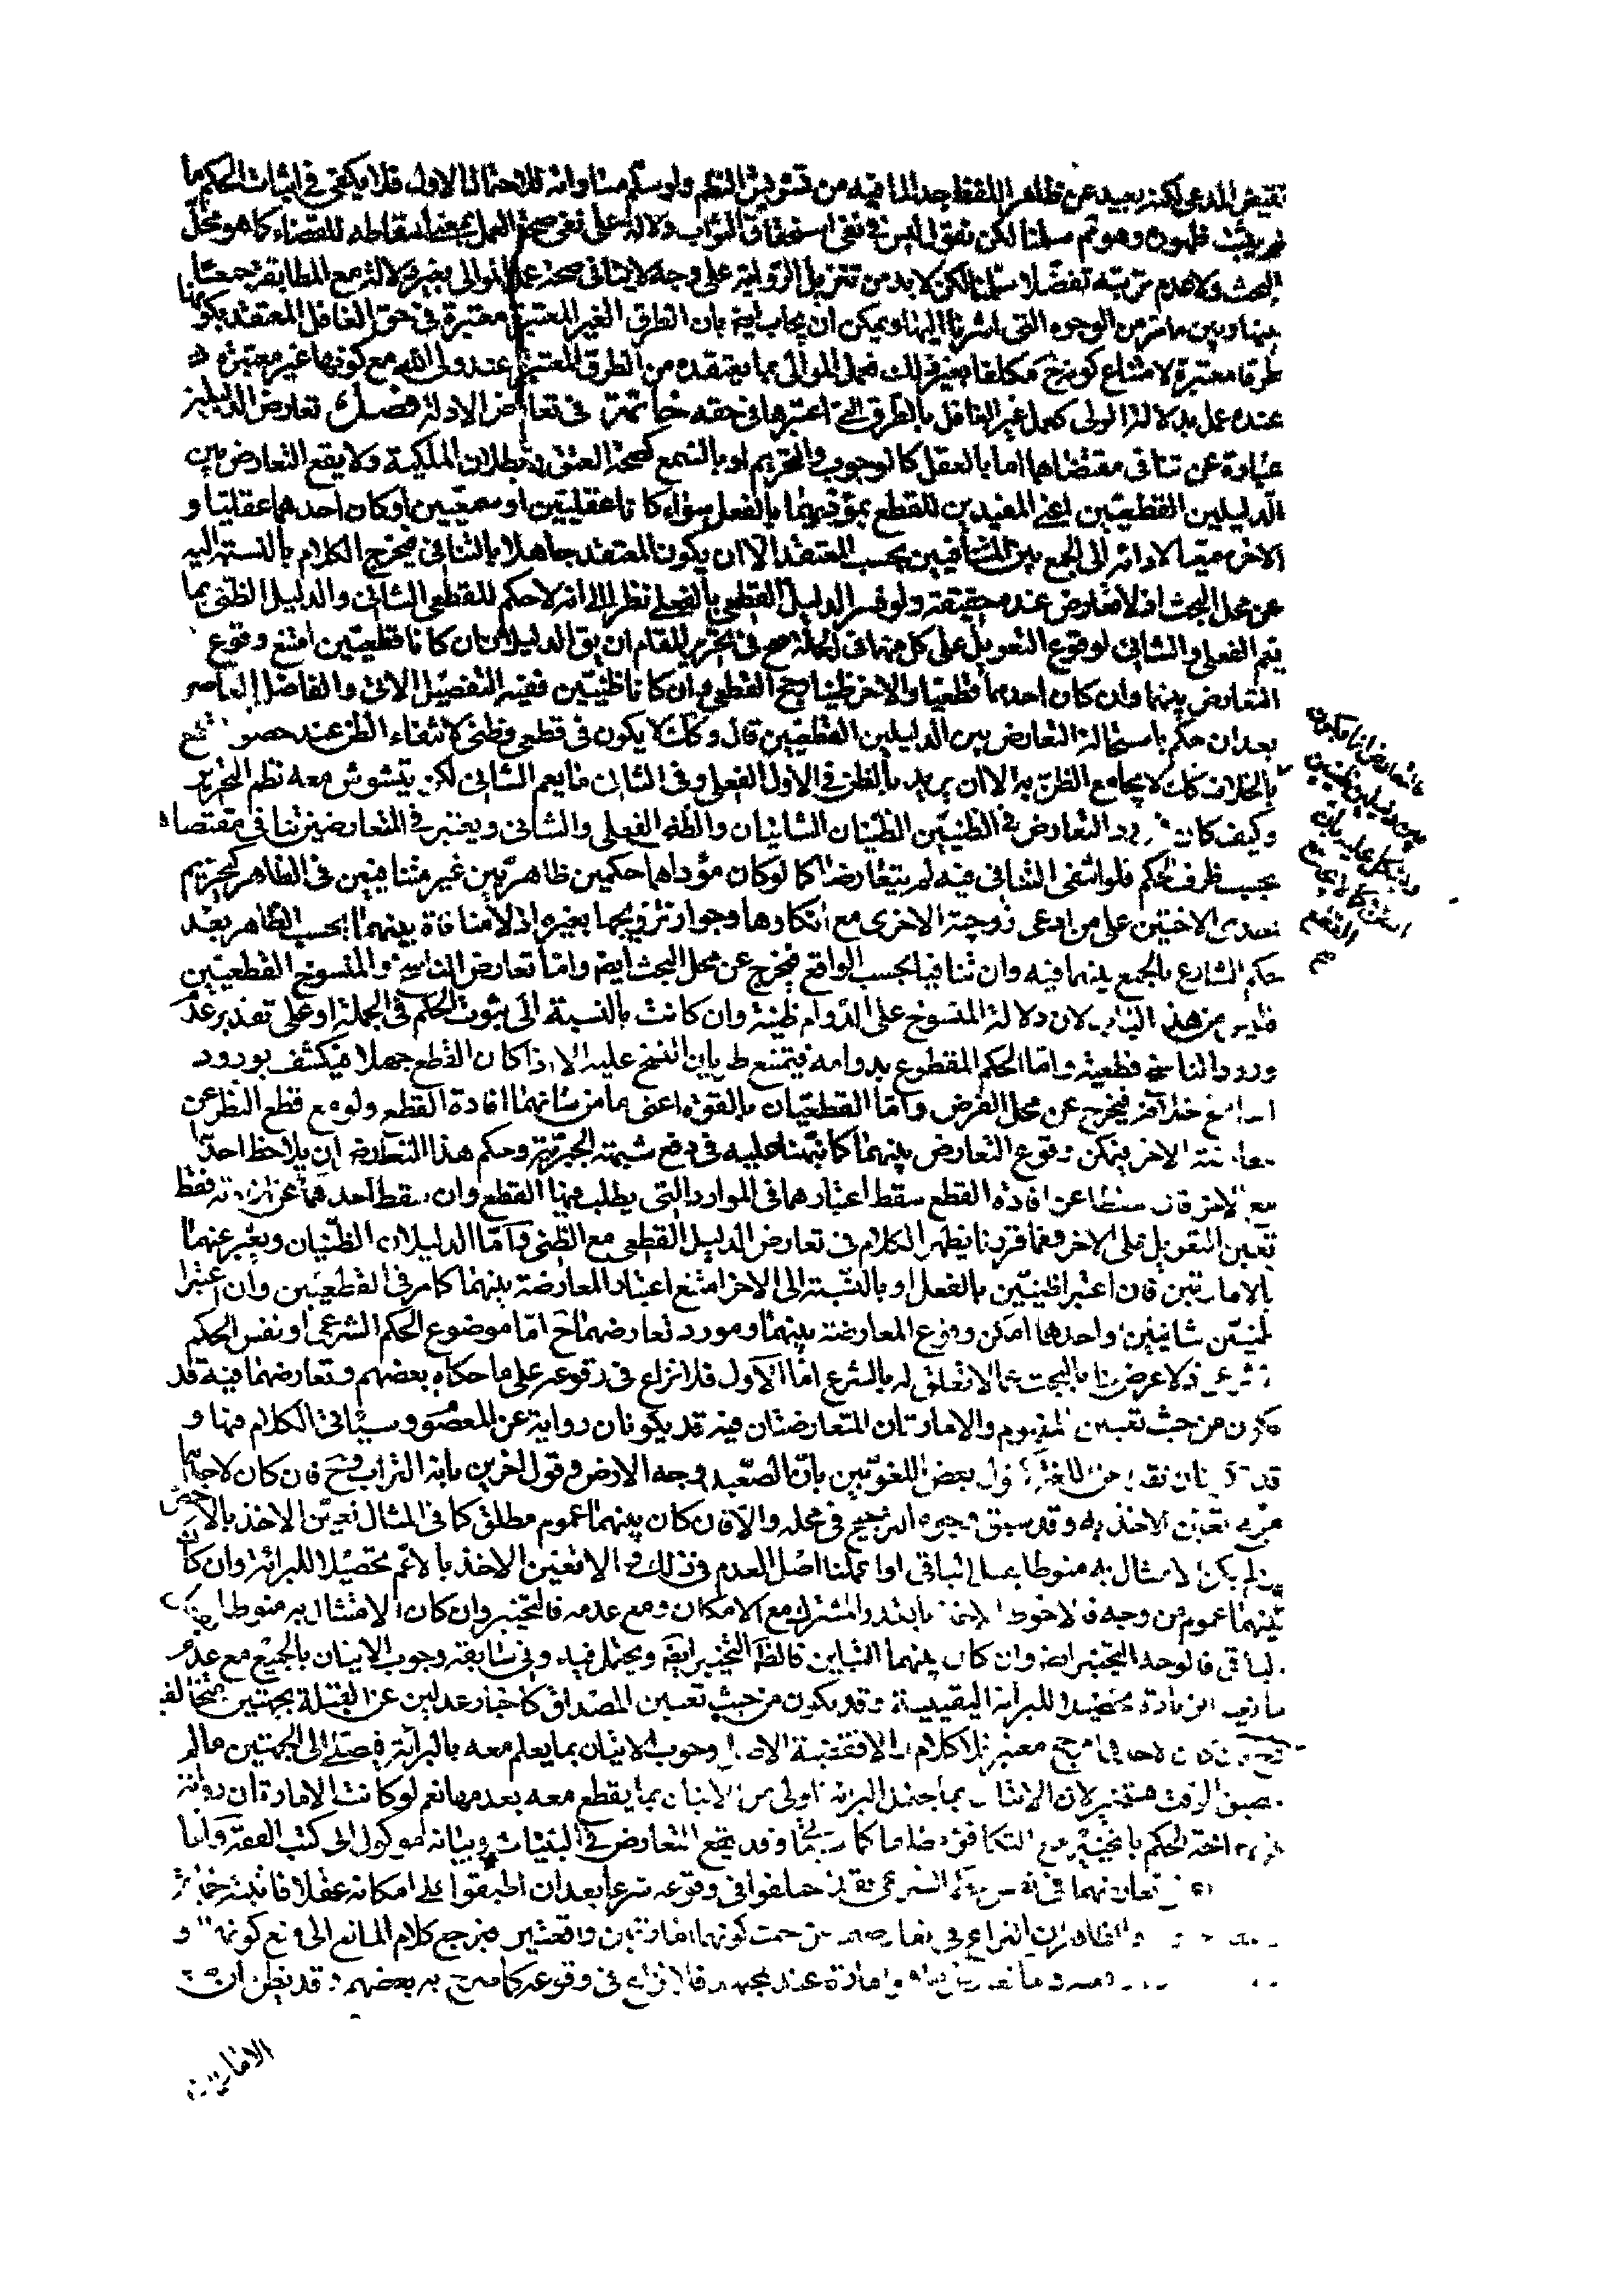 نقيض المدعى لكنه بعيد عن ظاهر اللفظ جدا لما فيه من تشويش النظم ولو سلم مساواته للاحتمال الاول فلا يكفى فى اثبات الحكم ما
لم يثبت ظهوره وهو ثم سلمنا لكن نقول ليس فى نفى استحقاق الثواب دلالة على نفى صحة العمل بمعنى اسقاطه للقضاء كما هو محل
البحث ولا عدم ترتبه تفضلا سلمنا لكن لا بد من تنزيل الرواية على وجه لا ينافى صحة عمل الموالى بغير دلالته مع المطابقة جمعا
بينها وبين ما مر من الوجوه التى اشرنا اليها ويمكن ان يجاب ايضا بان الطرق الغير المعتبرة معتبرة فى حق الغافل المعتقد بكونها
طرقا معتبرة لامتناع كونه ح مكلفا بغير ذلك فعمل الموالى بما يعتقده من الطرق المعتبرة عند ولى الله مع كونها غير معتبرة
عنده عمل بدلالة الولى كعمل غير الغافل بالطرق التى اعتبرها فى حقه خاتمة فى تعارض الادلة فصل تعارض الدليلين
عبارة عن تنافى مقتضاهما اما بالعقل كالوجوب والتحريم او بالسمع كصحة العتق وبطلان الملكية ولا يقع التعارض بين
الدليلين القطعيين اعنى المفيدين للقطع بمؤديهما بالفعل سواء كانا عقليين او سمعيين او كان احدهما عقليا و
الاخر سمعيا لادائه الى الجمع بين المتنافيين بحسب المعتقد الا ان يكون المعتقد جاهلا بالتنافى فيخرج الكلام بالنسبة اليه
عن محل البحث اذ لا تعارض عنده حقيقة ولو فسر الدليل القطعى بالفعلى نظرا الى انه لا حكم للقطعى الشانى والدليل الظنى بما
يعم الفعلى والشانى لوقوع التعويل على كل منهما فى الجملة صح فى تحرير المقام ان يق الدليلان ان كانا قطعيين امتنع وقوع
التعارض بينهما وان كان احدهما قطعيا والاخر ظنيا رجح القطعى وان كانا ظنيين ففيه التفصيل الاتى والفاضل المعاصر
بعد ان حكم باستحالة التعارض بين الدليلين القطعيين قال وكك لا يكون فى قطعى وظنى لانتفاء الظن عند حصول القطع
بالخلاف كك لا يجامع الظن به الا ان يريد بالظن فى الاول الفعلى وفى الثانى ما يعم الشانى لكن يتشوش معه نظم التحرير
وكيف كان يرد التعارض فى الظنيين الظنيان الشانيان والظنى الفعلى والشانى ويعتبر فى المتعارضين تنافى مقتضاهما
بحسب ظرف الحكم فلو انتفى التنافى فيه لم يتعارضا كما لو كان مؤداهما حكمين ظاهريين غير متنافيين فى الظاهر كتحريم
احدى الاختين على من ادعى زوجية الاخرى مع انكارها وجواز تزويجها بغيره اذ لا منافاة بينهما بحسب الظاهر بعد
حكم الشارع بالجمع بينهما فيه وان تنافيا بحسب الواقع فيخرج عن محل البحث ايضا واما تعارض الناسخ والمنسوخ القطعيين
فليس من هذا الباب لان دلالة المنسوخ على الدوام ظنية وان كانت بالنسبة الى ثبوت الحكم فى الجملة او على تقدير عدم
ورود الناسخ قطعية واما الحكم المقطوع بدوامه فيمتنع طريان النسخ عليه الا اذا كان القطع جهلا فينكشف بورود
الناسخ خلافه فيخرج عن محل الفرض واما القطعيان بالقوة اعنى ما من شانهما افادة القطع ولو مع قطع النظر عن
معارضة الاخر فيمكن وقوع التعارض بينهما كما نبهنا عليه فى دفع شبهة الجبرية وحكم هذا التعارض ان يلاحظ احدهما
مع الاخر فان سقطا عن افادة القطع سقط اعتبارهما فى الموارد التى يطلب فيها القطع وان سقط احدهما عن افادته فقط
تعين التعويل على الاخر ومما قررنا يظهر الكلام فى تعارض الدليل القطعى مع الظنى واما الدليلان الظنيان ويعبر عنهما
بالامارتين فان اعتبرا ظنيين بالفعل او بالنسبة الى الاخر امتنع اعتبار المعارضة بينهما كما مر فى القطعيين وان اعتبرا
ظنيين شانيين او احدهما امكن وقوع المعارضة بينهما ومورد تعارضهما ح اما موضوع الحكم الشرعى او نفس الحكم
الشرعى ولا غرض لنا بالبحث عما لا تعلق له بالشرع اما الاول فلا نزاع فى وقوعه على ما حكاه بعضهم وتعارضهما فيه قد
يكون من حيث تعيين المفهوم والامارتان المتعارضتان فيه قد يكونان رواية عن المعصوم وسيأتى الكلام فيها و
قد يكونان نقلا عن اللغة كقول بعض اللغويين بان الصعيد وجه الارض وقول اخرين بانه التراب وح فان كان لاحدهما
مزية تعين الاخذ به وقد سبق وجوه الترجيح فى محله والا فان كان بينهما عموم مطلق كما فى المثال تعين الاخذ بالاخص
ان لم يكن الامتثال به منوطا بمسالى الباقى او اعملنا اصل العدم فى ذلك والا تعين الاخذ بالاعم تحصيلا للبرائة وان كان
بينهما عموم من وجه فالاحوط الاخذ بالقدر المشترك مع الامكان ومع عدمه فالتخيير وان كان الامتثال به منوطا
الباقى فالوجه التخيير ايضا وان كان بينهما التباين فالظ التخيير ايضا ويحتمل فيه وفى سابقه وجوب الاتيان بالجميع مع عدم
مانعية الزيادة تحصيلا للبرائة اليقينية وقد يكون من حيث تعيين المصداق كاخبار عدلين عن القبلة بجهتين مختلفتين
فان كان لاحدهما مرجح معتبر فلا كلام والا فقضية الاصل وجوب الاتيان بما يعلم معه بالبرائة فيصلى الى الجهتين ما لم
يضيق الوقت فيتخير لان الاتيان بما يحتمل البرائة اولى من الاتيان بما يقطع معه بعدمها نعم لو كانت الامارة ان رواية
اتجه الحكم بالتخيير مع التكافؤ مطلقا كما سيجئ وقد يقع التعارض فى البينات وبيانه موكول الى كتب الفقه واما
تعارضهما فى نفس الحكم الشرعى فقد اختلفوا فى وقوعه شرعا بعد ان اطبقوا على امكانه عقلا فاثبته
والظاهر ان النزاع فى تعارضهما من حيث كونهما امارتين واقعيتين فيرجع كلام المانع الى منع كونه و
امارة عند المجتهد فلا نزاع فى وقوعه كما صرح به بعضهم وقد يظن ان
الامارتين